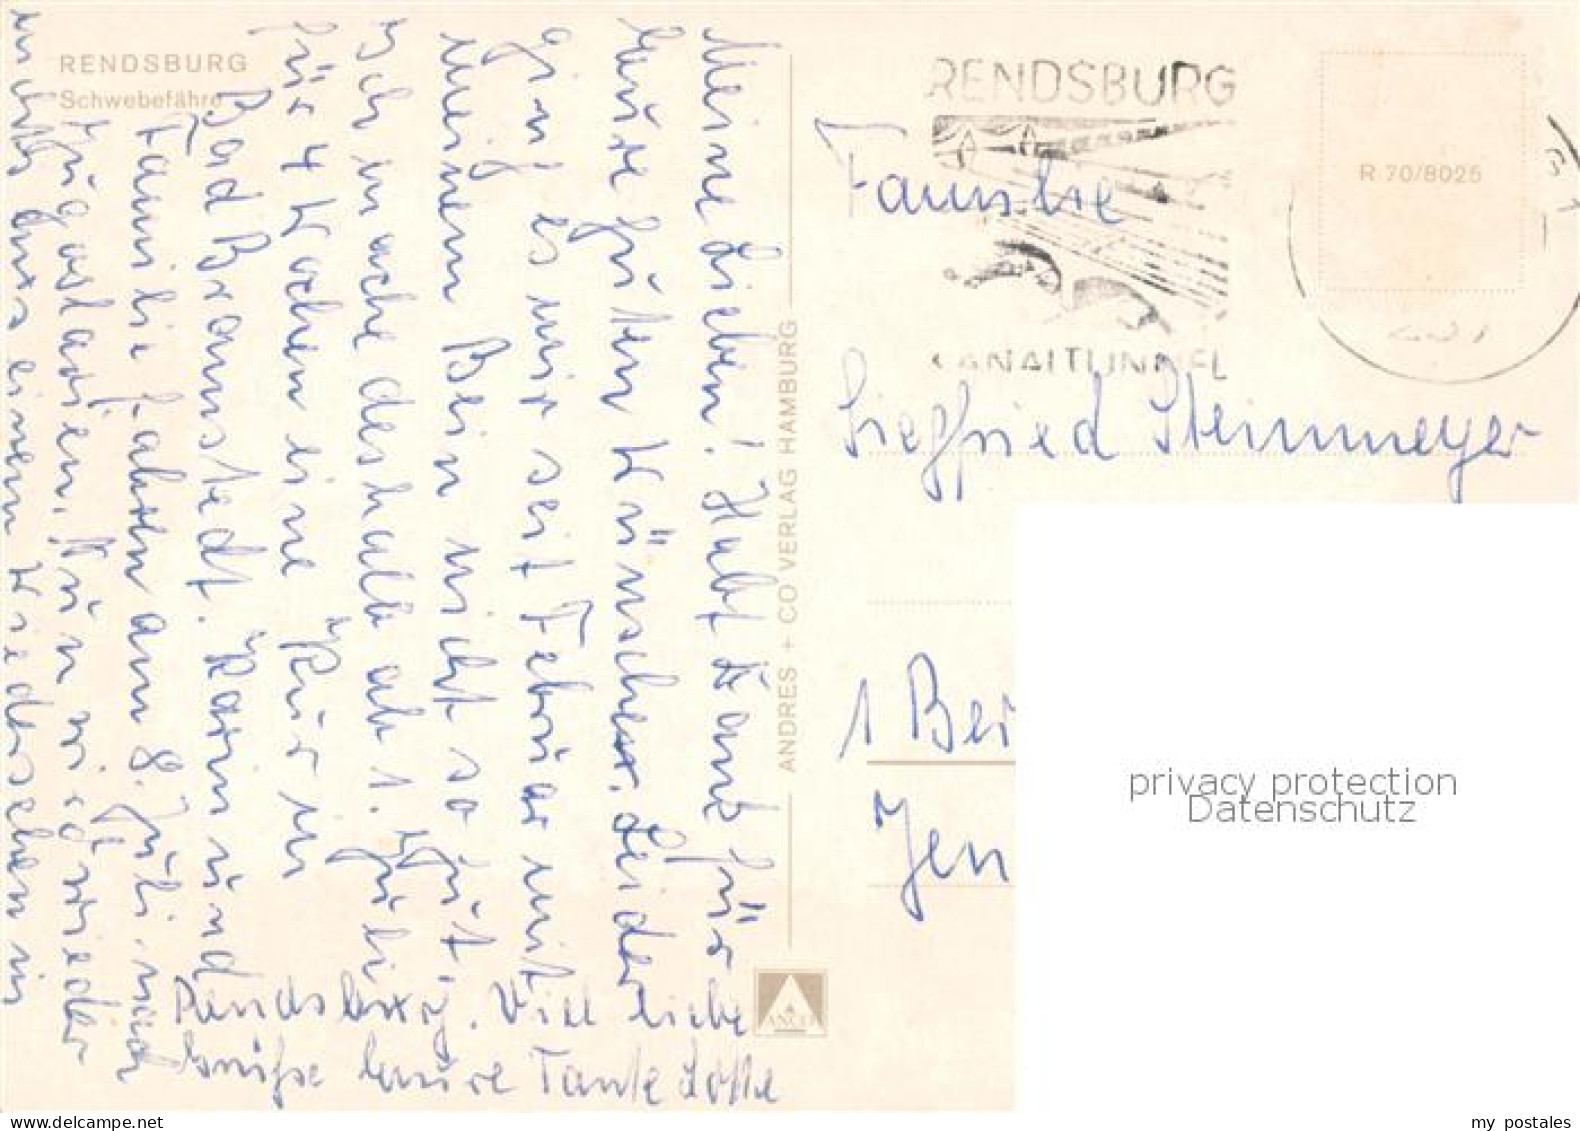 RENDSBURG
Schwebefähre
Meine Lieben! Habt Dank für
Eure guten Wünsche. Leider
gin' es mir seit Februar mit
meinem Bein nicht so gut.
Ich mache deshalb ab 1. Juli
für 4 Wochen eine "Kur" in
Bad Bramstedt. Karin und
Familie fahren am 8. Juli nach
Jugoslavien. Nun wird wieder
nichts aus einem Wiedersehen in
Rendsburg. Viele liebe
Grüße Eure Tante Lotte
ANDRES + CO VERLAG HAMBURG
ANCO
RENDSBURG
KANALTUNNEL
R 70/8025
Familie
Siegfried Steinmeyer
1 Ber
Jen
privacy protection
Datenschutz
www.delcampe.net
my_postales